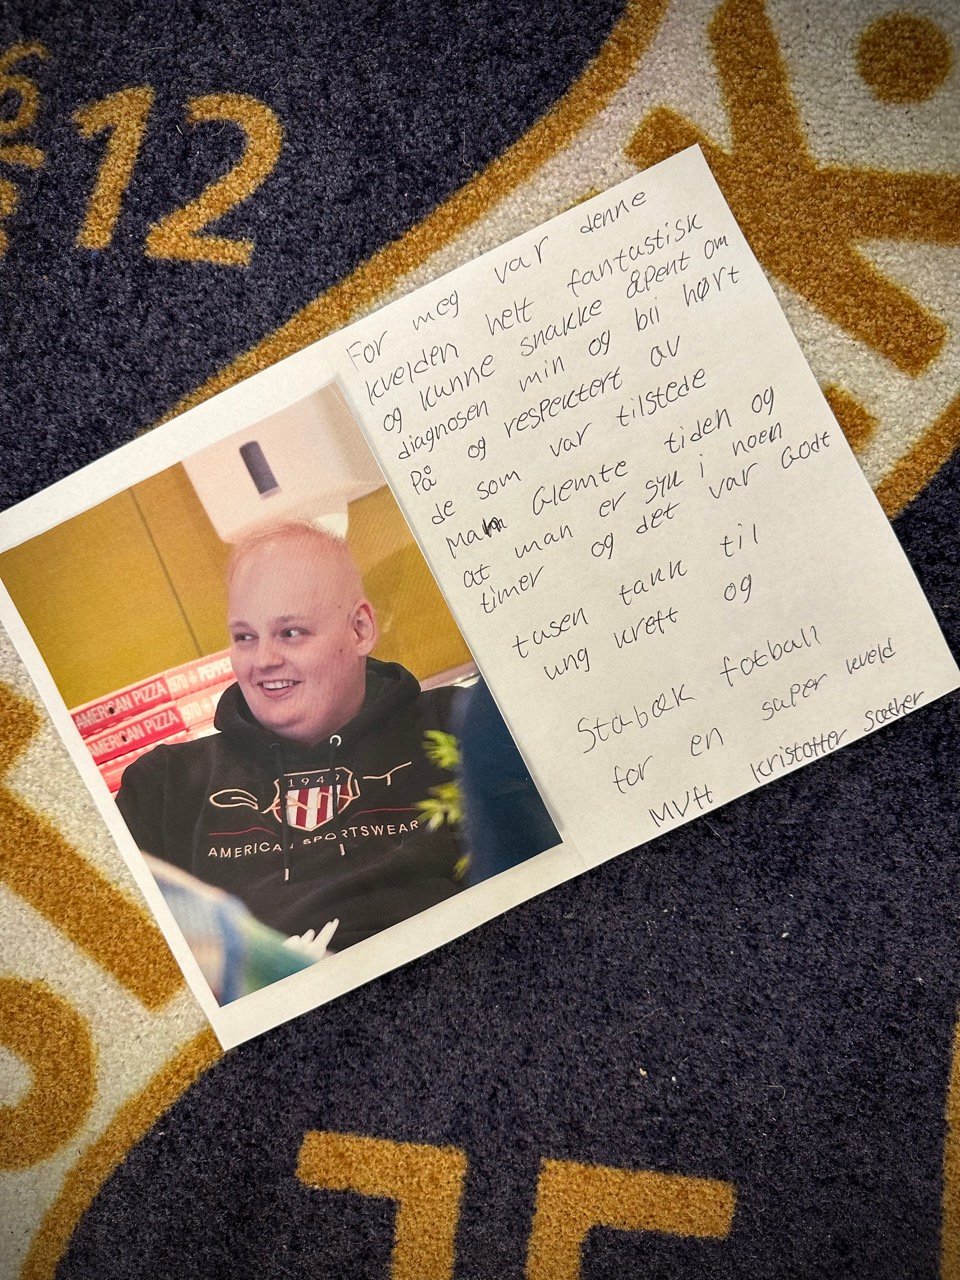 12
AMERICAN PIZZA
AMERICAN PIZZA
1949
GANT
AMERICAN SPORTSWEAR
For meg var denne
kvelden helt fantastisk
og kunne snakke åpent om
diagnosen min og bli hørt
på og respektert av
de som var tilstede
Man Glemte tiden og
at man er syk i noen
timer og det var Godt
tusen takk til
ung kreft og
Stabæk fotball
for en super kveld
MVH Kristoffer Sæther